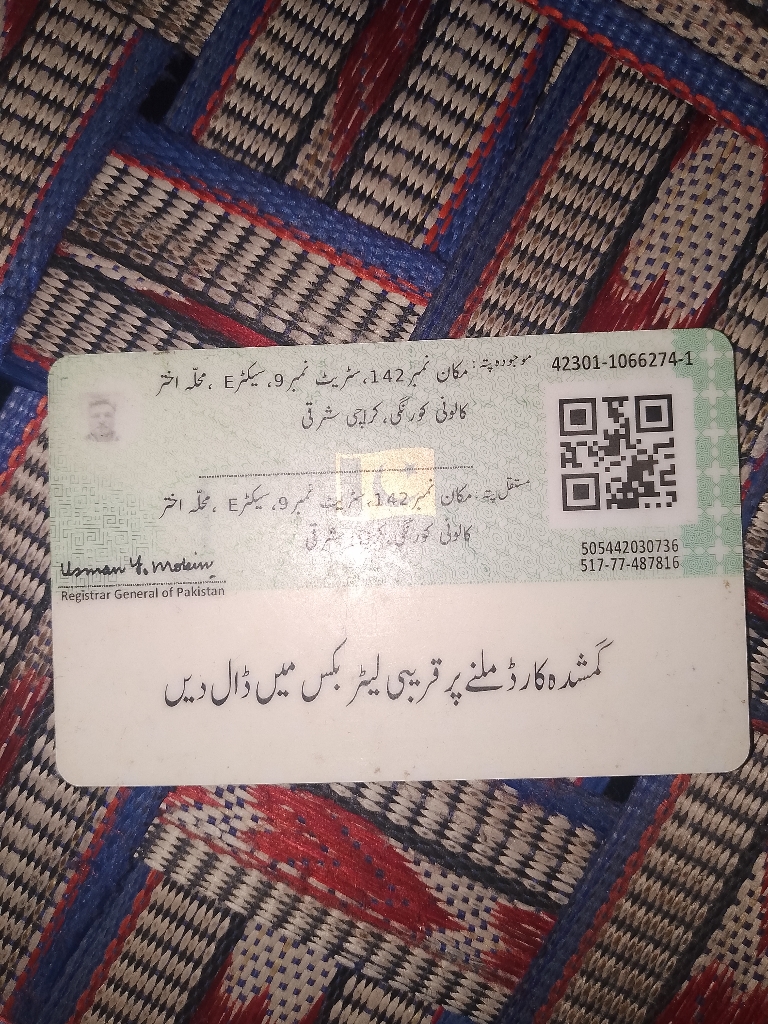 موجودہ پتہ: مکان نمبر 142، سٹریٹ نمبر 9، سیکٹر E ، محلّہ اختر
کالونی کورنگی، کراچی شرقی
42301-1066274-1
مستقل پتہ: مکان نمبر 142، سٹریٹ نمبر 9، سیکٹر E ، محلّہ اختر
کالونی کورنگی، کراچی شرقی
505442030736
517-77-487816
Usman Y. Mobin
Registrar General of Pakistan
گمشدہ کارڈ ملنے پر قریبی لیٹر بکس میں ڈال دیں